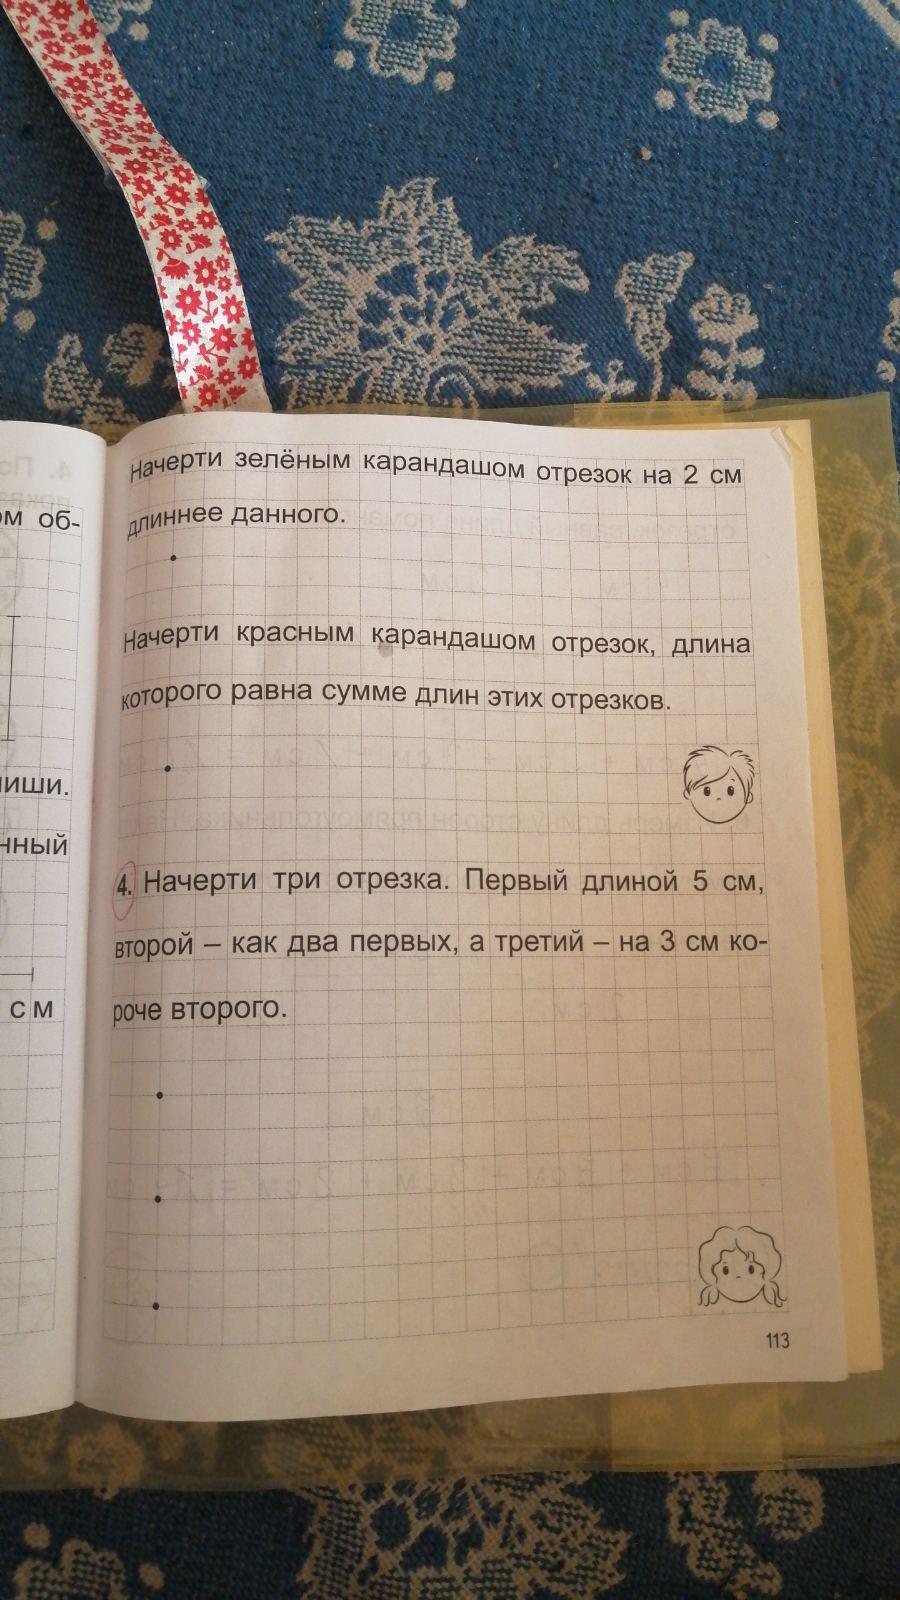 Начерти зелёным карандашом отрезок на 2 см
длиннее данного.
Начерти красным карандашом отрезок, длина
которого равна сумме длин этих отрезков.
4. Начерти три отрезка. Первый длиной 5 см,
второй – как два первых, а третий – на 3 см ко-
роче второго.
113
ом об-
нный
см